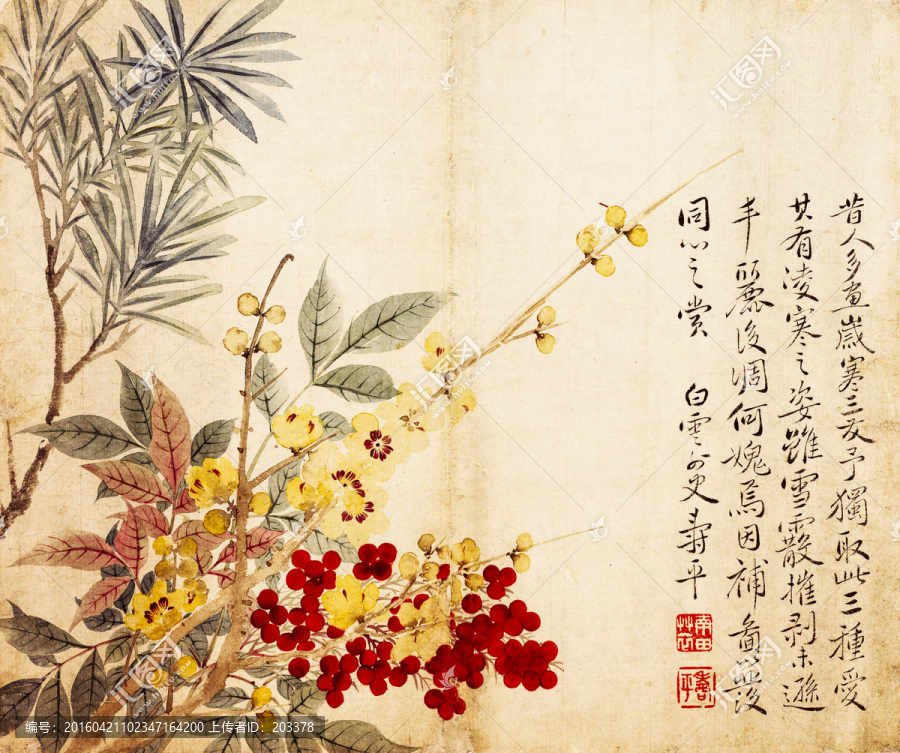 昔人多畫歲寒三友予獨取此三種愛
其有凌寒之姿雖雪霰摧剥未遜
丰麗後凋何媿焉因補圖
同心之赏 白雲外史壽平
南田草衣
壽平
汇图网
编号: 20160421102347164200 上传者ID: 203378